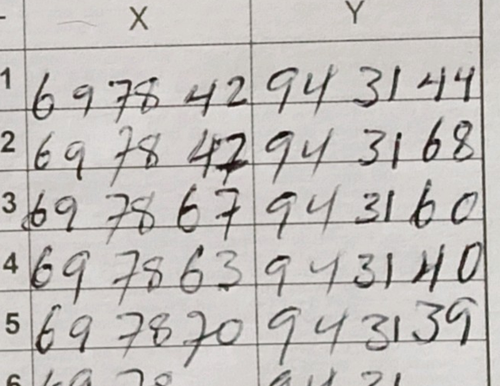 X Y
1 69 78 42 94 31 44
2 69 78 42 94 31 68
3 69 78 67 94 31 60
4 69 78 63 94 31 40
5 69 78 70 94 31 39
6 69 78 94 31